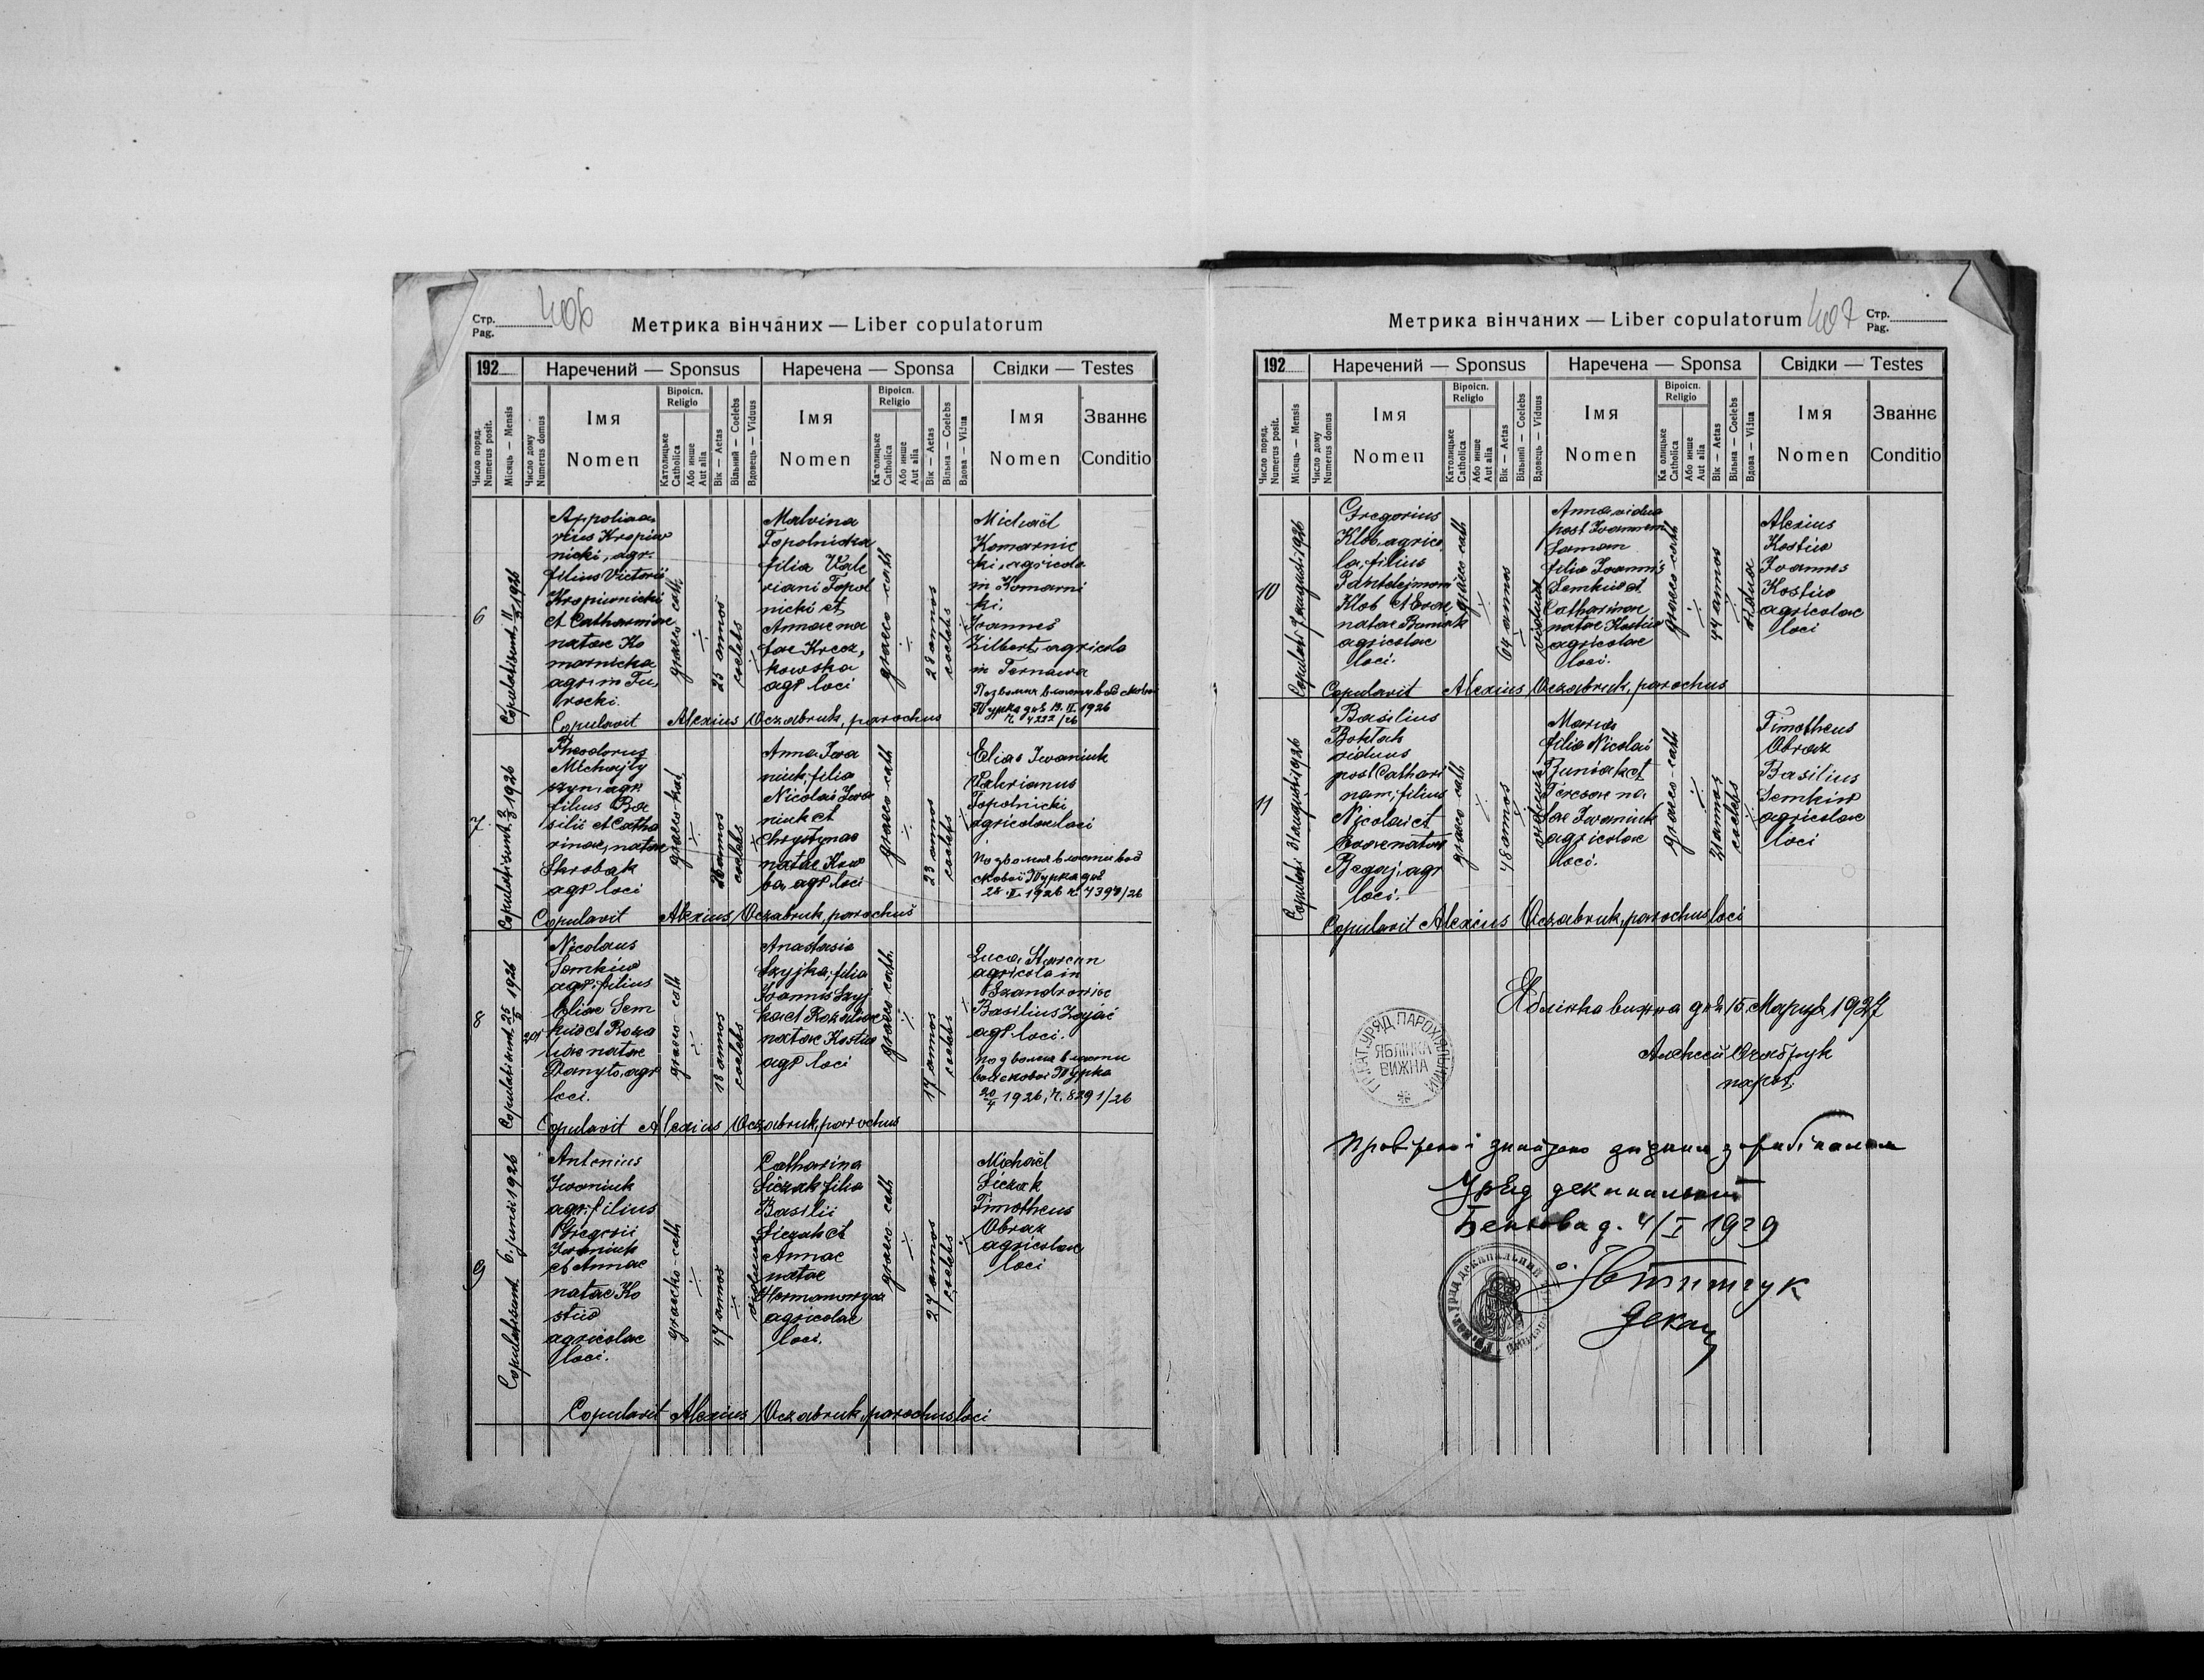 Стр.
Pag.
406
Метрика вінчаних — Liber copulatorum
192
Наречений — Sponsus
Наречена — Sponsa
Свідки — Testes
Число поряд.
Numerus posit.
Місяць — Mensis
Число дому
Numerus domus
Імя
Nomen
Віроісп.
Religio
Католицьке
Catholica
Або инше
Aut alia
Вік — Aetas
Вільний — Coelebs
Вдовець — Viduus
Імя
Nomen
Віроісп.
Religio
Католицьке
Catholica
Або инше
Aut alia
Вік — Aetas
Вільна — Coelebs
Вдова — Vidua
Імя
Nomen
Званнє
Conditio
6
Copulati sunt 11 1926
Appolina
rius Kropiw
nicki, agr.
filius Victorii
Kropiwnicki
et Catharinae
natae Ko
marnicka
agr. in Tu
rocki.
graeco cath
25 annos
coelebs
Malvina
Topolnicka
filia Vale
riani Topol
nicki et
Annae na
tae Krecz,
kowska
agr loci
graeco-cath
23 annos
coelebs
Michaël
Komarnic
ki, agricola
in Komarni
ki.
Joannes
Zilbert, agricola
in Ternawa
1926
ч. 4222/26
Copulavit Alexius Oczabruk, parochus
7
Copulati sunt 1926
Theodorus
Michajły
szyn, agr.
filius Ba
silii et Catha
rinae, natae
Skrobak
agr loci
graeco-kat
26 annos
coelebs
Anna Iwa
niuk, filia
Nicolai Iwa
niuk et
Chrystynae
natae Kow
ba agr loci
graeco-cath
23 annos
coelebs
Elias Iwaniuk
Valerianus
Topolnicki
agricolae loci
Позволенє власти вой
скової Турка дня
28. II. 1926 ч. 4397/26
Copulavit Alexius Oczabruk, parochus
8
Copulati sunt 25 1926
Nicolaus
Semkiw
agr. filius
Eliae Sem
kiw et Roza
liae natae
Danyło, agr
loci.
graeco-cath
18 annos
coelebs
Anastasia
Szyjka, filia
Joannis Szyj
ka et Rozaliae
natae Kostiw
agr loci
graeco cath.
17 annos
coelebs
Luca Starcun
agricola in
Szandrowice
Basilius Zajac
agr loci.
Позволенє власти
войскової Турка
20/4 1926, ч. 8291/26
Copulavit Alexius Oczabruk, parochus
9
Copulati sunt 6. junii 1926
Antonius
Iwaniuk
agr. filius
Gregorii
Iwaniuk
et Annae
natae Ko
stiw
agricolae
loci.
graecko-cath
47 annos
viduus
Catharina
Liczak filia
Basilii
Liczak et
Annae
natae
Hermanowycz
agricolae
loci.
graeco-cath
27 annos
coelebs
Michaël
Liczak
Timotheus
Obraz
agricolae
loci
Copulavit Alexius Oczabruk, parochus loci
Метрика вінчаних — Liber copulatorum
407
Стр.
Pag.
192
Наречений — Sponsus
Наречена — Sponsa
Свідки — Testes
Число поряд.
Numerus posit.
Місяць — Mensis
Число дому
Numerus domus
Імя
Nomen
Віроісп.
Religio
Католицьке
Catholica
Або инше
Aut alia
Вік — Aetas
Вільний — Coelebs
Вдовець — Viduus
Імя
Nomen
Віроісп.
Religio
Католицьке
Catholica
Або инше
Aut alia
Вік — Aetas
Вільна — Coelebs
Вдова — Vidua
Імя
Nomen
Званнє
Conditio
10
Copulati augusti 1926
Gregorius
Klob, agrico
la, filius
Pantelejmoni
Klob et Evae
natae Baniak
agricolae
loci.
graeco-cath
64 annos
viduus
Anna vidua
post Joannem
Laman
filia Joannis
Semkiw et
Catharinae
natae Kostiw
agricolae
loci.
graeco-cath
44 annos
vidua
Alexius
Kostiw
Joannes
Kostiw
agricolae
loci
Copulavit Alexius Oczabruk, parochus
11
Copulati 31 augusti 1926
Basilius
Boktah
viduus
post Cathari
nam, filius
Nicolai et
natae
Begaj, agr
loci.
graeco-cath
48 annos
viduus
Maria
filia Nicolai
Buniak et
Teresae na
tae Iwaniuk
agricolae
loci.
graeco-cath
21 annos
coelebs
Timotheus
Obraz
Basilius
Semkiw
agricolae
loci
Copulavit Alexius Oczabruk, parochus loci
Яблінка вижна дня 15. Марця 1927
Алексій Очабрук
парох
ГР. КАТ. УРЯД ПАРОХІЯЛЬНИЙ
ЯБЛІНКА
ВИЖНА
Провірено і знайдено згідним з оригіналом
Уряд деканальний
Бенева д. 4/I 1929
декан